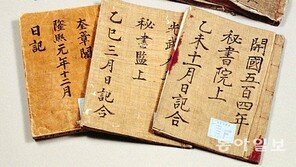 開國五百四年
秘書院上
乙未十月日記合
光武
秘書監上
乙巳三月日記合
奎章閣
隆熙元年十二月
日記
동아일보